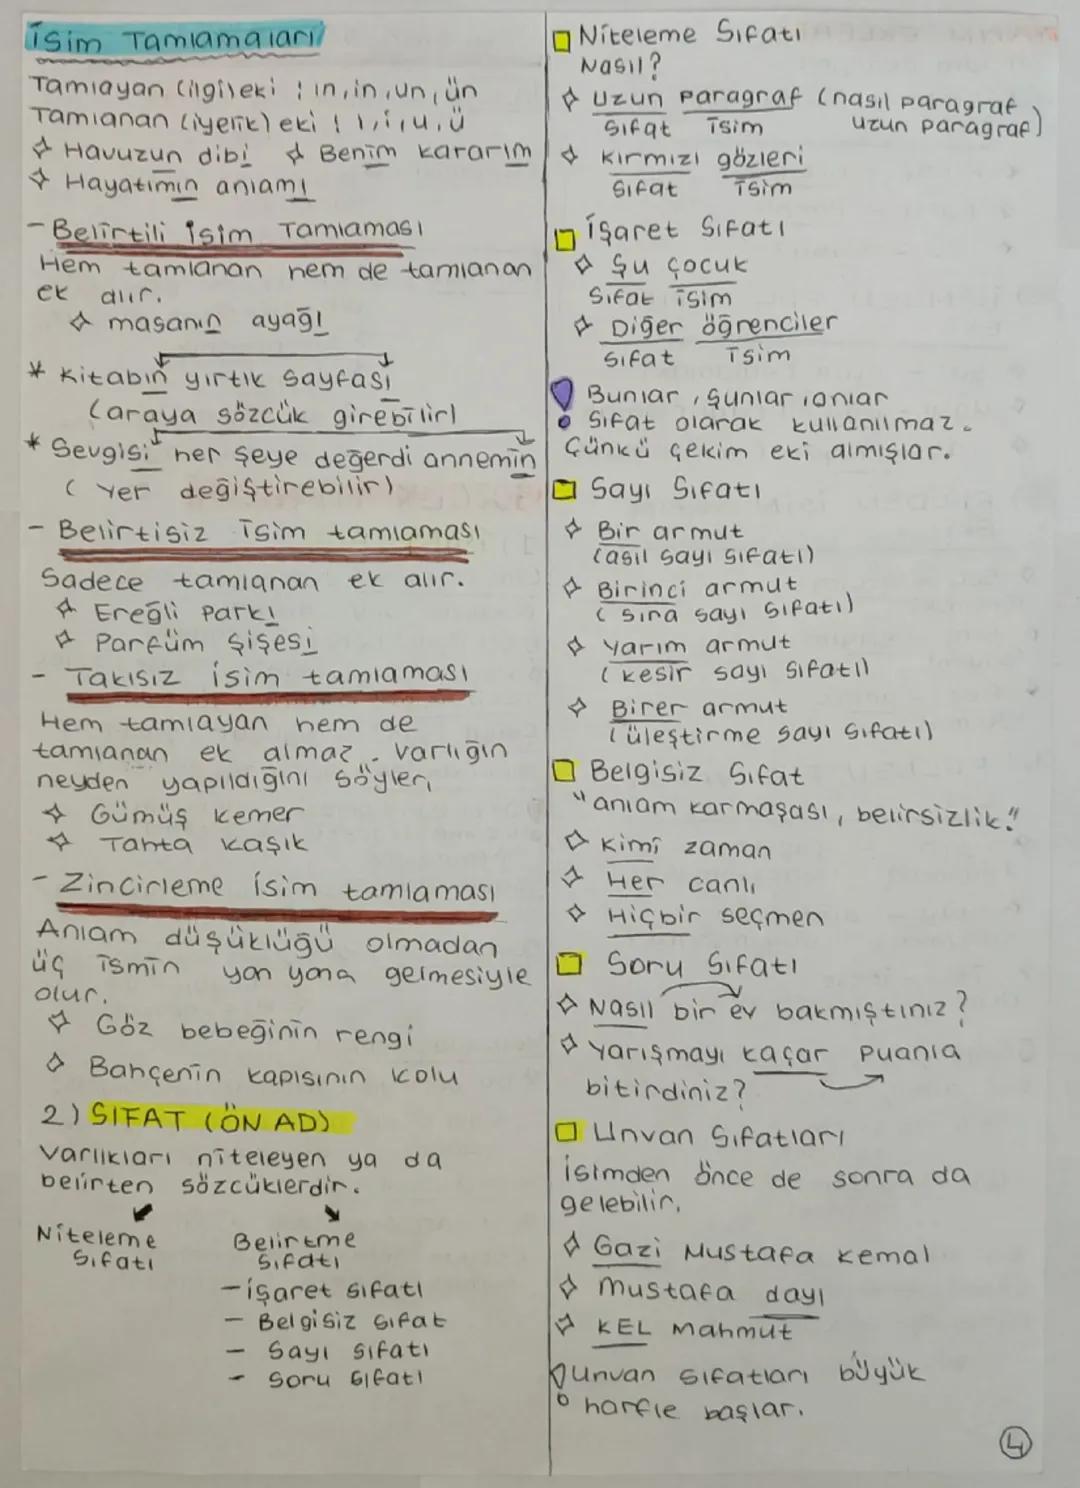 İsim Tamlamaları
Tamlayan (ilgi) eki : ın, in, un, ün
Tamlanan (iyelik) eki : ı, i, u, ü
✧ Havuzun dibi ✧ Benim kararım
✧ Hayatımın anlamı
- Belirtili İsim Tamlaması
Hem tamlanan hem de tamlanan
ek alır.
✧ masanın ayağı
* Kitabın yırtık sayfası
(araya sözcük girebilir)
* Sevgisi her şeye değerdi annemin
( Yer değiştirebilir)
- Belirtisiz İsim tamlaması
Sadece tamlanan ek alır.
✧ Ereğli Parkı
✧ Parfüm şişesi
- Takısız isim tamlaması
Hem tamlayan hem de
tamlanan ek almaz. Varlığın
neyden yapıldığını söyler,
✧ Gümüş kemer
✧ Tahta kaşık
- Zincirleme isim tamlaması
Anlam düşüklüğü olmadan
üç ismin yan yana gelmesiyle
olur.
✧ Göz bebeğinin rengi
✧ Bahçenin kapısının kolu
2) SIFAT (ÖN AD)
Varlıkları niteleyen ya da
belirten sözcüklerdir.
Niteleme Belirtme
Sıfatı Sıfatı
- işaret sıfatı
- Belgisiz sıfat
- Sayı sıfatı
- Soru sıfatı
Niteleme Sıfatı
Nasıl?
✧ Uzun paragraf (nasıl paragraf
Sıfat İsim uzun paragraf)
✧ Kırmızı gözleri
Sıfat İsim
İşaret Sıfatı
✧ Şu çocuk
Sıfat İsim
✧ Diğer öğrenciler
Sıfat İsim
! Bunlar, şunlar, onlar
sıfat olarak kullanılmaz.
Çünkü çekim eki almışlar.
Sayı Sıfatı
✧ Bir armut
(asıl sayı sıfatı)
✧ Birinci armut
( Sıra sayı sıfatı)
✧ Yarım armut
( kesir sayı sıfatı)
✧ Birer armut
(üleştirme sayı sıfatı)
Belgisiz Sıfat
"anlam karmaşası, belirsizlik."
✧ Kimi zaman
✧ Her canlı
✧ Hiçbir seçmen
Soru Sıfatı
✧ Nasıl bir ev bakmıştınız?
✧ Yarışmayı kaçar puanla
bitirdiniz?
Unvan Sıfatları
İsimden önce de sonra da
gelebilir.
✧ Gazi Mustafa Kemal
✧ Mustafa dayı
✧ KEL Mahmut
! Unvan sıfatları büyük
harfle başlar.
4